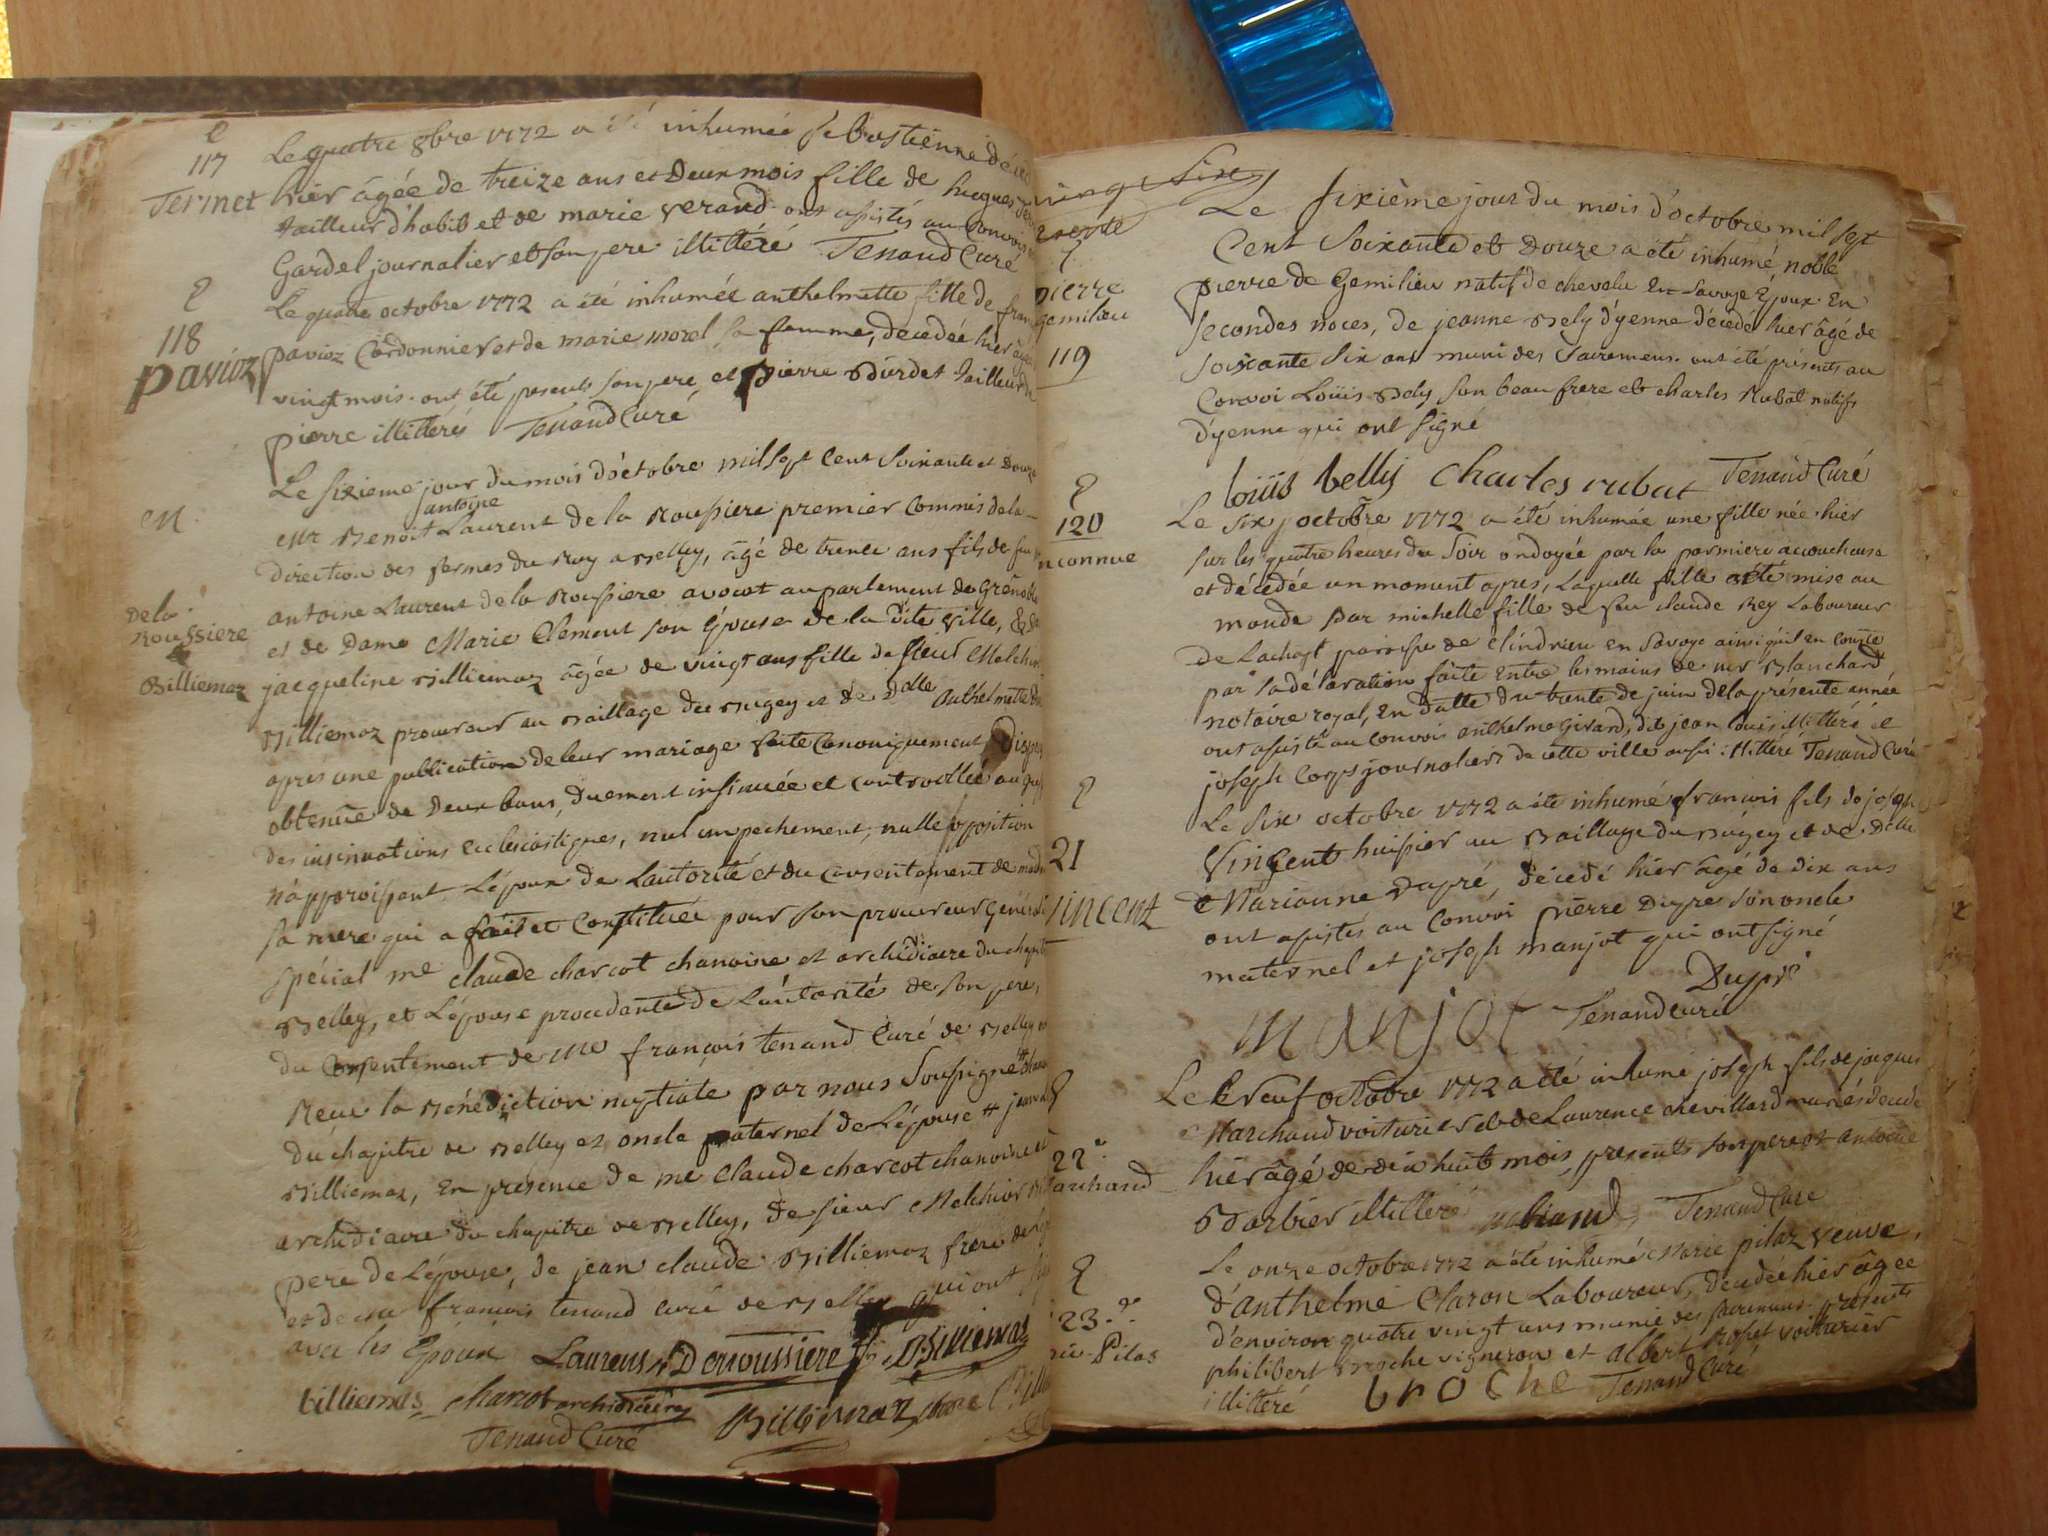 E
117
Termet
Le quatre 8bre 1772 a été inhumée Sebastienne décédée
hier âgée de treize ans et Deux mois fille de hugues
tailleur d'habit et de marie verand. ont assistés au Convoi
Gardel journalier et son pere illittéré Tenand Curé
E
118
pavioz
Le quatre octobre 1772 a été inhumée anthelmette fille de
pavioz Cordonnier et de marie morel sa femme, décédée hier âgée
vingt mois. ont été presents son pere et pierre Burdet tailleur
pierre illitterés Tenand Curé
M
De la Roussiere
Billiemaz
Le sixieme jour du mois d'octobre mil sept Cent Soixante et Douze
antoine
Mr Benoit Laurent de la Roussiere premier Commis de la
Direction des fermes du Roy a Belley, âgé de trente ans fils de feu
antoine Laurent de la Roussiere avocat au parlement de Grenoble
et de Dame Marie Clement son Épouse de la dite Ville, &
jacqueline Billiemaz âgée de vingt ans fille de sieur Melchior
Billiemaz procureur au Baillage du Bugey et de Delle anthelmette
après une publication de leur mariage faite Canoniquement
obtenüe de Deux bans, duement insinuée et controollée au
Des insinuations Ecclesiastiques, nul empechement, nulle opposition
n'apparoissant L'époux de L'autorité et du consentement de
sa mere qui a fait et Constitué pour son procureur Général
spécial me Claude charcot chanoine et archidiacre du chapitre
Belley, et L'épouse procedante de L'autorité de son pere,
du Consentement de Me françois tenand Curé de Belley
Receu la Bénédiction nuptiale par nous Soussigné
du chapitre de Belley et oncle paternel de L'épouse #
Billiemaz, En presence de me Claude charcot chanoine et
archidiacre du chapitre de Belley, de sieur Melchior
pere de L'épouse, de jean claude Billiemaz frere de
et de françois tenand curé de Belley qui ont
avec les Epoux Laurens Deroussiere Billiemaz
billiemas charcot archidiacre Billiemaz
Tenand Curé
vingt Six
E
pierre
gemilieu
119
Le sixième jour du mois d'octobre mil sept
Cent Soixante et Douze a été inhumé, noble
pierre de Gemilieu natif de chevelu En Savoye Epoux En
secondes noces, de jeanne Bely d'yenne décédé hier âgé de
soixante six ans muni des Sacremens. ont été présents au
Convoi Loüis Bely son beau frere et charles Rubat natifs
d'yenne qui ont signé
loüis belly Charles rubat Tenand Curé
E
120
inconnue
Le six octobre 1772 a été inhumée une fille née hier
sur les quatre heures du Soir ondoyée par la premiere accoucheuse
et décédée un moment apres, Laquelle fille a été mise au
monde par michelle fille de feu claude Rey Laboureur
De Lachapt paroisse de Clindrieu en Savoye ainsi qu'il en Conste
par sa déclaration faite Entre les mains de me Blanchard
notaire royal, En datte du trente de juin de la présente année
ont assisté au Convoi anthelme Girard, dit jean Louis illittéré et
joseph Corps journaliers de cette ville aussi illittéré Tenand Curé
E
21
Vincent
Le six octobre 1772 a été inhumé françois fils de joseph
Vincent huissier au Baillage du Bugey et de Delle
Marianne Dupré, décédé hier âgé de dix ans
ont assistés au Convoi pierre Dupre son oncle
maternel et joseph manjot qui ont signé
Dupré
manjot Tenand curé
E
22
Marchand
Le neuf octobre 1772 a été inhumé joseph fils de jacques
Marchand voiturier et de Laurence chevillard mariés décédé
hier âgé de dix huit mois, presents son pere et antoine
Barbier illitteré Tenand Curé
E
23
Pilaz
Le onze octobre 1772 a été inhumé Marie pilaz veuve
d'anthelme Claron Laboureur, décédée hier âgée
d'environ quatre vingt ans munie des sacremens. presents
philibert broche vigneron et albert Rosset voiturier
illitteré broche Tenand Curé